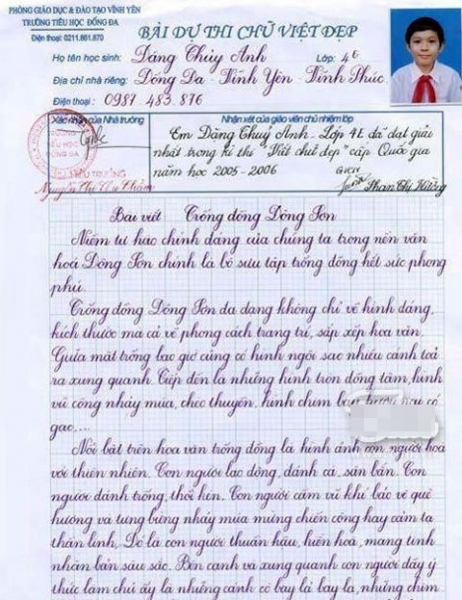 PHÒNG GIÁO DỤC & ĐÀO TẠO VĨNH YÊN
TRƯỜNG TIỂU HỌC ĐỐNG ĐA
Điện thoại: 0211.861.870
BÀI DỰ THI CHỮ VIỆT ĐẸP
Họ tên học sinh: Đặng Thùy Anh Lớp: 4E
Địa chỉ nhà riêng: Đống Đa - Vĩnh Yên - Vĩnh Phúc
Điện thoại: 0987 483 876
Xác nhận của Nhà trường
HIỆU TRƯỞNG
Nhận xét của giáo viên chủ nhiệm lớp
Em Đặng Thuỳ Anh - Lớp 4E đã đạt giải
nhất trong kì thi "Viết chữ đẹp" cấp Quốc gia
năm học 2005 - 2006
GVCN
Phan Thị Hường
Bài viết Trống đồng Đông Sơn
Niềm tự hào chính đáng của chúng ta trong nền văn
hoá Đông Sơn chính là bộ sưu tập trống đồng hết sức phong
phú.
Trống đồng Đông Sơn đa dạng không chỉ về hình dáng,
kích thước mà cả về phong cách trang trí, sắp xếp hoa văn.
Giữa mặt trống bao giờ cũng có hình ngôi sao nhiều cánh toả
ra xung quanh. Tiếp đến là những hình tròn đồng tâm, hình
vũ công nhảy múa, chèo thuyền, hình chim bay, hươu nai có
gạc....
Nổi bật trên hoa văn trống đồng là hình ảnh con người hoà
với thiên nhiên. Con người lao động, đánh cá, săn bắn. Con
người đánh trống, thổi kèn. Con người cầm vũ khí bảo vệ quê
hương và tưng bừng nhảy múa mừng chiến công hay cảm tạ
thần linh. Đó là con người thuần hậu, hiền hoà, mang tính
nhân bản sâu sắc. Bên cạnh và xung quanh con người đầy ý
thức làm chủ ấy là những cánh cò bay lả bay la, những chim